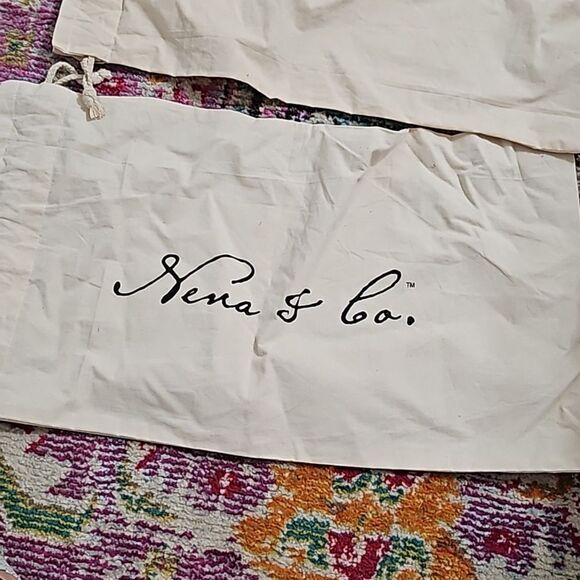 Nena & Co.™